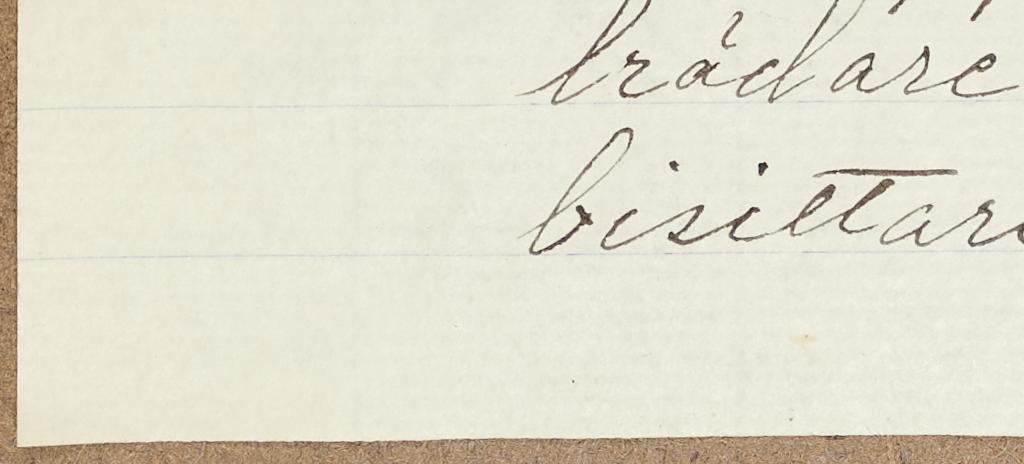 trädare
bisittare